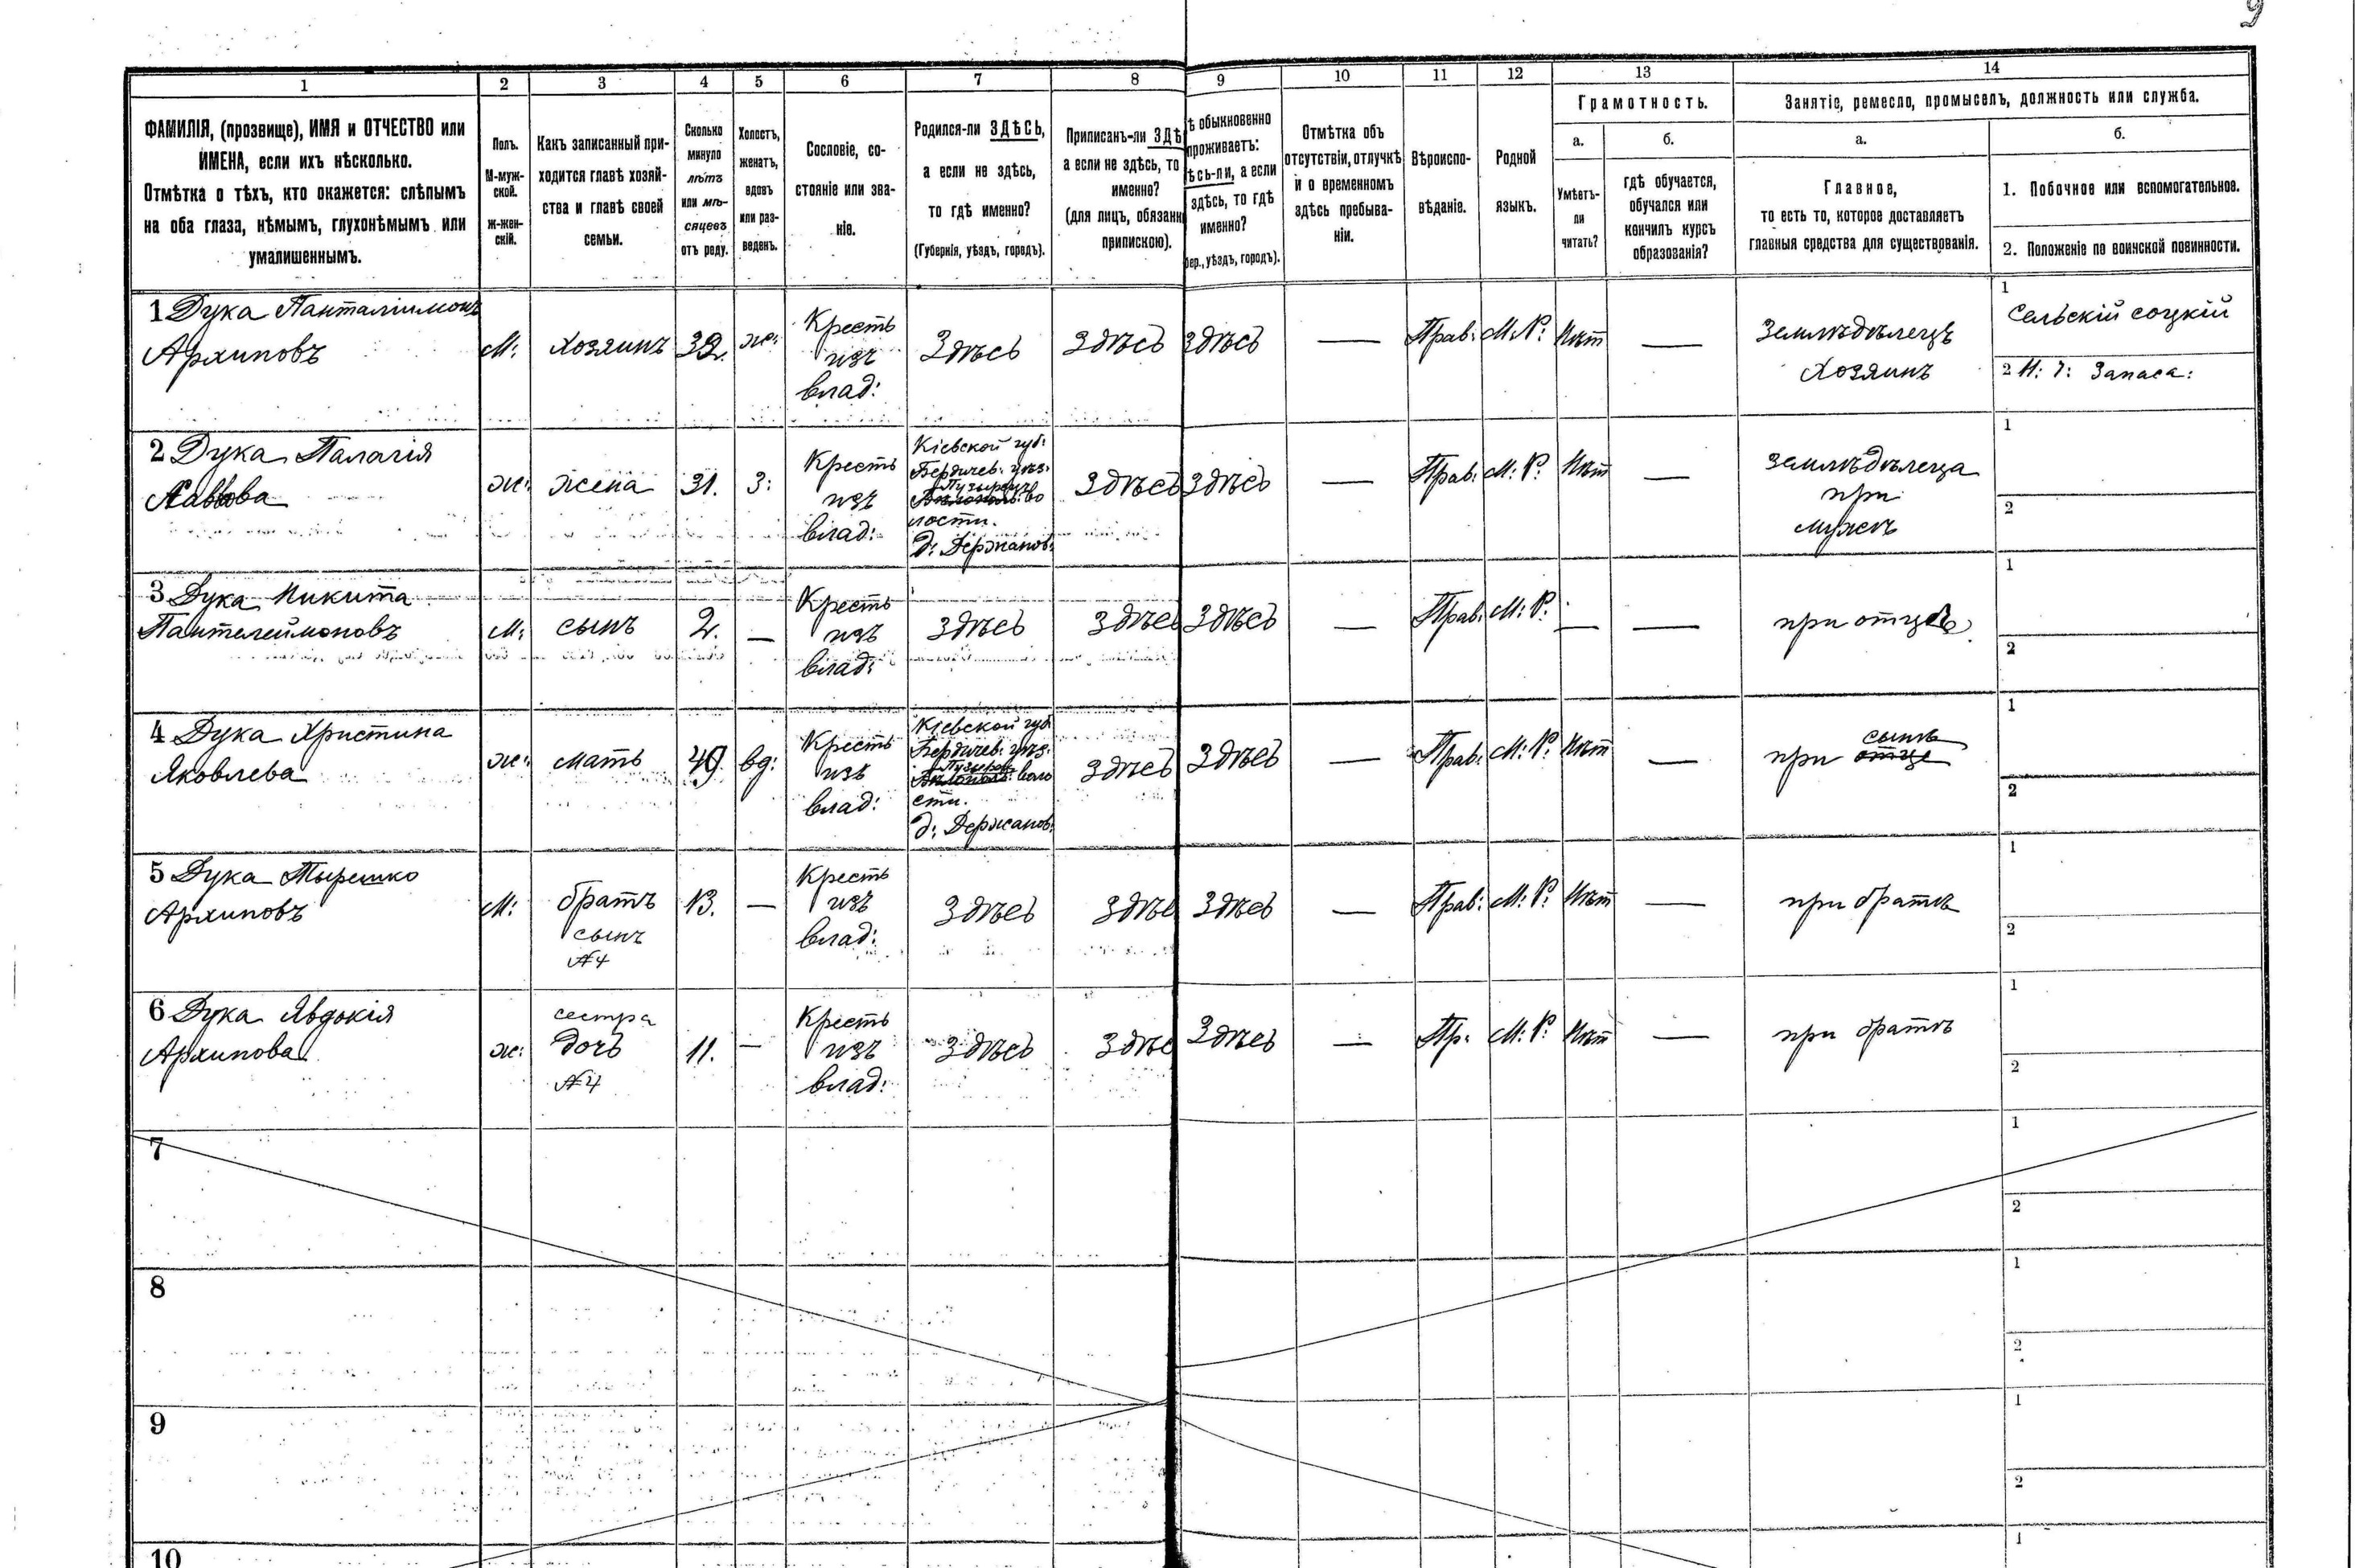 9
1 2 3 4 5 6 7 8 9 10 11 12 13 14
ФАМИЛІЯ, (прозвище), ИМЯ и ОТЧЕСТВО или
ИМЕНА, если ихъ нѣсколько.
Отмѣтка о тѣхъ, кто окажется: слѣпымъ
на оба глаза, нѣмымъ, глухонѣмымъ или
умалишеннымъ.
Полъ.
М-муж-
ской.
Ж-жен-
скій.
Какъ записанный при-
ходится главѣ хозяй-
ства и главѣ своей
семьи.
Сколько
минуло
лѣтъ
или мѣ-
сяцевъ
отъ роду.
Холостъ,
женатъ,
вдовъ
или раз-
веденъ.
Сословіе, со-
стояніе или зва-
ніе.
Родился-ли ЗДѢСЬ,
а если не здѣсь,
то гдѣ именно?
(Губернія, уѣздъ, городъ).
Приписанъ-ли ЗДѢ
а если не здѣсь, то
именно?
(для лицъ, обязанн
припискою).
ѣ обыкновенно
проживаетъ:
ѣсь-ли, а если
здѣсь, то гдѣ
именно?
бер., уѣздъ, городъ).
Отмѣтка объ
отсутствіи, отлучкѣ
и о временномъ
здѣсь пребыва-
ніи.
Вѣроиспо-
вѣданіе.
Родной
языкъ.
Грамотность.
а.
Умѣетъ-
ли
читать?
б.
гдѣ обучается,
обучался или
кончилъ курсъ
образованія?
Занятіе, ремесло, промыселъ, должность или служба.
а.
Главное,
то есть то, которое доставляетъ
главныя средства для существованія.
б.
1. Побочное или вспомогательное.
2. Положеніе по воинской повинности.
1 Дука Панталіимонъ
Архиповъ
М: Хозяинъ 32. ж:
Кресть
изъ
влад:
Здѣсь Здѣсь Здѣсь — Прав: М: Р: Нѣт —
Землѣдѣлецъ
Хозяинъ
1 Сельскій соцкій
2 Н: Ч: Запаса:
2 Дука Палагія
Саввова
ж: жена 31. З:
Кресть
изъ
влад:
Кіевской губ:
Бердичев: уѣз:
во
лости.
д: Держанов:
Здѣсь Здѣсь — Прав: М: Р: Нѣт —
Землѣдѣлеца
при
мужѣ
1
2
3 Дука Никита
Пантелеймоновъ
М: сынъ 2. —
Кресть
изъ
влад:
Здѣсь Здѣсь Здѣсь — Прав: М: Р: — —
при отцѣ
1
2
4 Дука Христина
Яковлева
ж: мать 49 вд:
Кресть
изъ
влад:
Кіевской губ
Бердичев: уѣз:
воло
сти.
д: Держанов:
Здѣсь Здѣсь — Прав: М: Р: Нѣт —
сынѣ
при отце
1
2
5 Дука Тырешко
Архиповъ
М:
братъ
сынъ
№ 4
13. —
Кресть
изъ
влад:
Здѣсь Здѣс Здѣсь — Прав: М: Р: Нѣт —
при братѣ
1
2
6 Дука Явдокія
Архипова
ж:
сестра
дочь
№ 4
11. —
Кресть
изъ
влад:
Здѣсь Здѣс Здѣсь — Пр. М: Р: Нѣт —
при братѣ
1
2
7
1
2
8
1
2
9
1
2
10
1